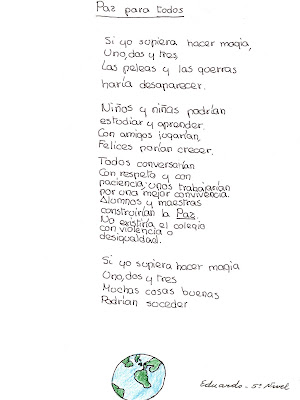 Paz para todos
Si yo supiera hacer magia,
Uno, dos y tres
Las peleas y las guerras
haría desaparecer.
Niños y niñas podrían
estudiar y aprender.
Con amigos jugarían,
Felices porían crecer.
Todos conversarían
Con respeto y con
paciencia; unos trabajarían
por una mejor convivencia.
Alumnos y maestras
construirían la Paz.
No existiría el colegio
con violencia o
desigualdad.
Si yo supiera hacer magia
Uno, dos y tres
Muchas cosas buenas
Podrían suceder
Eduardo - 5º Nivel